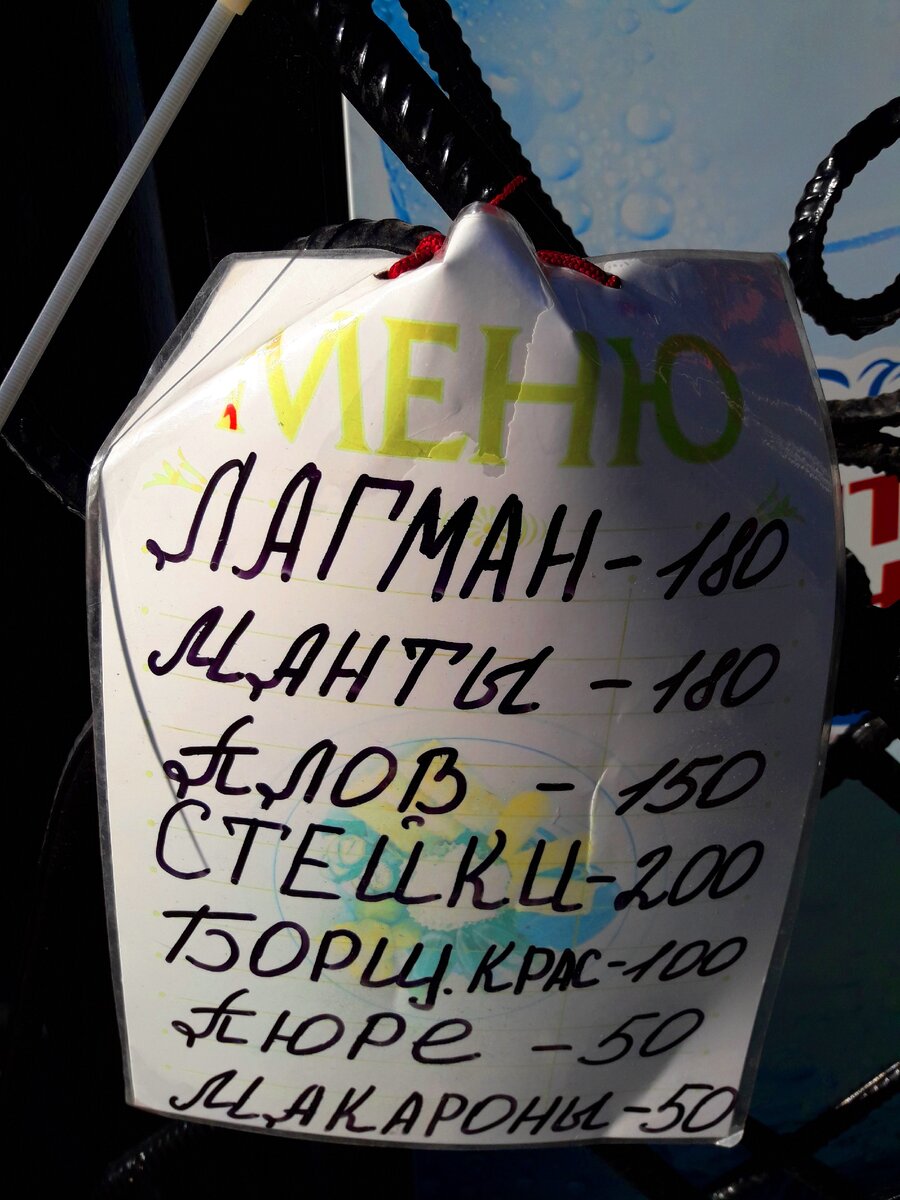 МЕНЮ
ЛАГМАН - 180
МАНТЫ - 180
ПЛОВ - 150
СТЕЙКИ - 200
БОРЩ. КРАС - 100
ПЮРе - 50
МАКАРОНЫ - 50